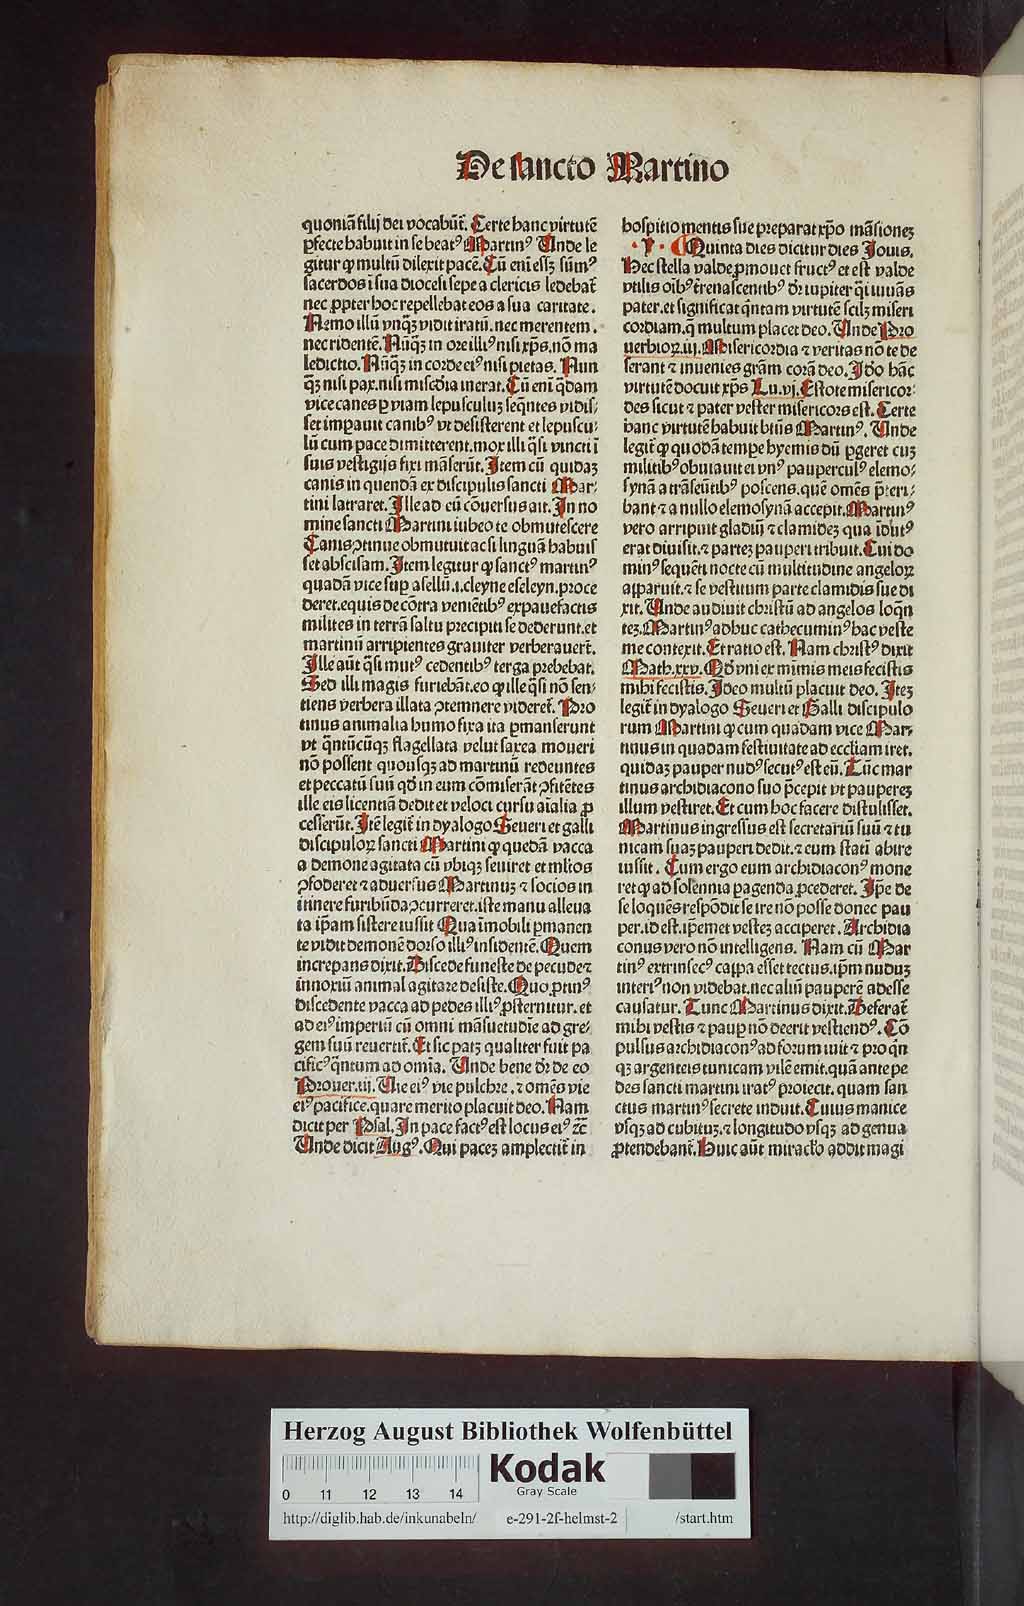 De sancto Martino
quoniā filij dei vocabūt̄. Certe hanc virtutē
ꝑfecte habuit in se beatꝰ Martinꝰ Unde le
gitur ꝙ multū dilexit pacē. Cū eni̅ essꝫ sūmꝰ
sacerdos i̅ sua diocesi sepe a clericis ledebat̄
nec ꝓpter hoc repellebat eos a sua caritate.
Nemo illū vnqꝫ̄ vidit iratū. nec merentem.
nec ridentē. Nūqꝫ̄ in ore illiꝰ nisi xp̄s. nō ma
ledictio. Nūqꝫ̄ in corde eiꝰ nisi pietas. Nun
qꝫ̄ nisi pax. nisi misc̄dia inerat. Cū eni̅ q̄dam
vice canes ꝑ viam lepusculuꝫ seq̄ntes vidis⸗
set imꝑauit canibꝰ vt desisterent et lepuscu⸗
lū cum pace dimitterent. mox illi q̄si vincti i̅
suis vestigijs fixi māserūt. Item cū quidaꝫ
canis in quendā ex discipulis sancti Mar⸗
tini latraret. Ille ad eū cōuersus ait. In no
mine sancti Martini iubeo te obmutescere
Canis ꝯtinue obmutuit ac si linguā habuis
set abscisam. Item legitur ꝙ sanctꝰ martinꝰ
quadā vice suꝑ asellū .i. cleyne eseleyn. proce
deret. equis de cōtra venie̅tibꝰ expauefactis
milites in terrā saltu precipiti se dederunt. et
martinū arripientes grauiter verberauerūt.
Ille aūt q̄si mutꝰ cedentibꝰ terga prebebat.
Sed illi magis furiebāt. eo ꝙ ille q̄si nō sen⸗
tiens verbera illata ꝯtemnere videret̄. Pro
tinus animalia humo fixa ita ꝑmanserunt
vt q̄ntūcūqꝫ flagellata velut saxea moueri
nō possent quousqꝫ ad martinū redeuntes
et peccatū suū qd̄ in eum cōmiserāt ꝯfitētes
ille eis licentiā dedit et veloci cursu aialia ꝓ
cesserūt. Itē legit̄ in dyalogo Seueri et galli
discipuloꝝ sancti Martini ꝙ quedā vacca
a demone agitata cū vbiqꝫ seuiret et ml̄tos
ꝯfoderet ⁊ aduersus Martinuꝫ ⁊ socios in
itinere furibūda ꝯcurreret. iste manu alleua
ta ip̄am sistere iussit Qua i̅mobili ꝑmanen
te vidit demonē dorso illiꝰ insidentē. Quem
increpans dixit. Discede funeste de pecude ⁊
innoxiū animal agitare desiste. Quo ꝓtinꝰ
discedente vacca ad pedes illiꝰ ꝓsternitur. et
ad eiꝰ imperiū cū omni māsuetudie ad gre⸗
gem suū reuertit̄. Et sic patꝫ qualiter fuit pa
cificꝰ q̄ntum ad omīa. Unde bene dr̄ de eo
Prouer. iij. Vie eiꝰ vie pulchre. ⁊ omēs vie
eiꝰ pacifice. quare merito placuit deo. Nam
dicit per Psal. In pace factꝰ est locus eiꝰ ⁊c̄
Unde dicit Augꝰ. Qui paceꝫ amplectit̄ in
hospitio mentis sue preparat xp̄o māsioneꝫ
·V· Quinta dies dicitur dies Jouis.
Hec stella valde ꝓmouet fructꝰ et est valde
vtilis oi̅bꝰ t̄renascentibꝰ dr̄ iupiter q̄i iuuās
pater. et significat q̄ntam virtutē scilꝫ miseri
cordiam. q̄ multum placet deo. Unde Pro
uerbioꝝ. iij. Misericordia ⁊ veritas nō te de
serant ⁊ inuenies gr̄am corā deo. Id̄o hāc
virtutē docuit xp̄s Lu. vj. Estote misericor⸗
des sicut ⁊ pater vester misericors est. Certe
hanc virtutē habuit btūs Martinꝰ. Unde
legit̄ ꝙ quodā tempe hyemis dū ꝑgeret cuꝫ
militibꝰ obuiauit ei vnꝰ pauperculꝰ elemo⸗
synā a trāseūtibꝰ poscens. quē omēs p̄teri⸗
bant ⁊ a nullo elemosynā accepit. Martinꝰ
vero arripuit gladiū ⁊ clamideꝫ qua i̅dutꝰ
erat diuisit. ⁊ parteꝫ pauperi tribuit. Cui do
minꝰ sequēti nocte cū multitudine angeloꝝ
apparuit. ⁊ se vestitum parte clamidis sue di
xit. Unde audiuit christū ad angelos loq̄n
teꝫ. Martinꝰ adhuc cathecuminꝰ hac veste
me contexit. Et ratio est. Nam christꝰ dixit
Math. xxv. Qd̄ vni ex mi̅mis meis fecistis
mihi fecistis. Ideo multū placuit deo. Iteꝫ
legit̄ in dyalogo Seueri et Galli discipulo
rum Martini ꝙ cum quadam vice Mar⸗
tinus in quadam festiuitate ad eccl̄iam iret.
quidaꝫ pauper nudꝰ secutꝰ est eū. Tūc mar
tinus archidiacono suo p̄cepit vt paupereꝫ
illum vestiret. Et cum hoc facere distulisset.
Martinus ingressus est secretariū suū ⁊ tu
nicam suaꝫ pauperi dedit. ⁊ eum stati̅ abire
iussit. Cum ergo eum archidiaconꝰ mone
ret ꝙ ad solennia ꝑagenda ꝓcederet. Ip̄e de
se loquēs respōdit se ire nō posse donec pau
per. id est. ip̄emet vesteꝫ acciperet. Archidia
conus vero nō intelligens. Nam cū Mar
tinꝰ extrinsecꝰ cappa esset tectus. ip̄m nuduꝫ
interiꝰ non videbat. nec aliū pauperē adesse
causatur. Tunc Martinus dixit. Deferat̄
mihi vestis ⁊ paup̲ nō deerit vestiendꝰ. Cō
pulsus archidiaconꝰ ad forum iuit ⁊ pro qn̄
qꝫ argenteis tunicam vilē emit. quā ante pe
des sancti martini iratꝰ proiecit. quam san
ctus martinꝰ secrete induit. Cuius manice
vsqꝫ ad cubituꝫ. ⁊ longitudo vsqꝫ ad genua
ꝓtendebant̄. Huic aūt miraclo addit magi
Herzog August Bibliothek Wolfenbüttel
0 11 12 13 14
Kodak
Gray Scale
http://diglib.hab.de/inkunabeln/ e-291-2f-helmst-2 /start.htm